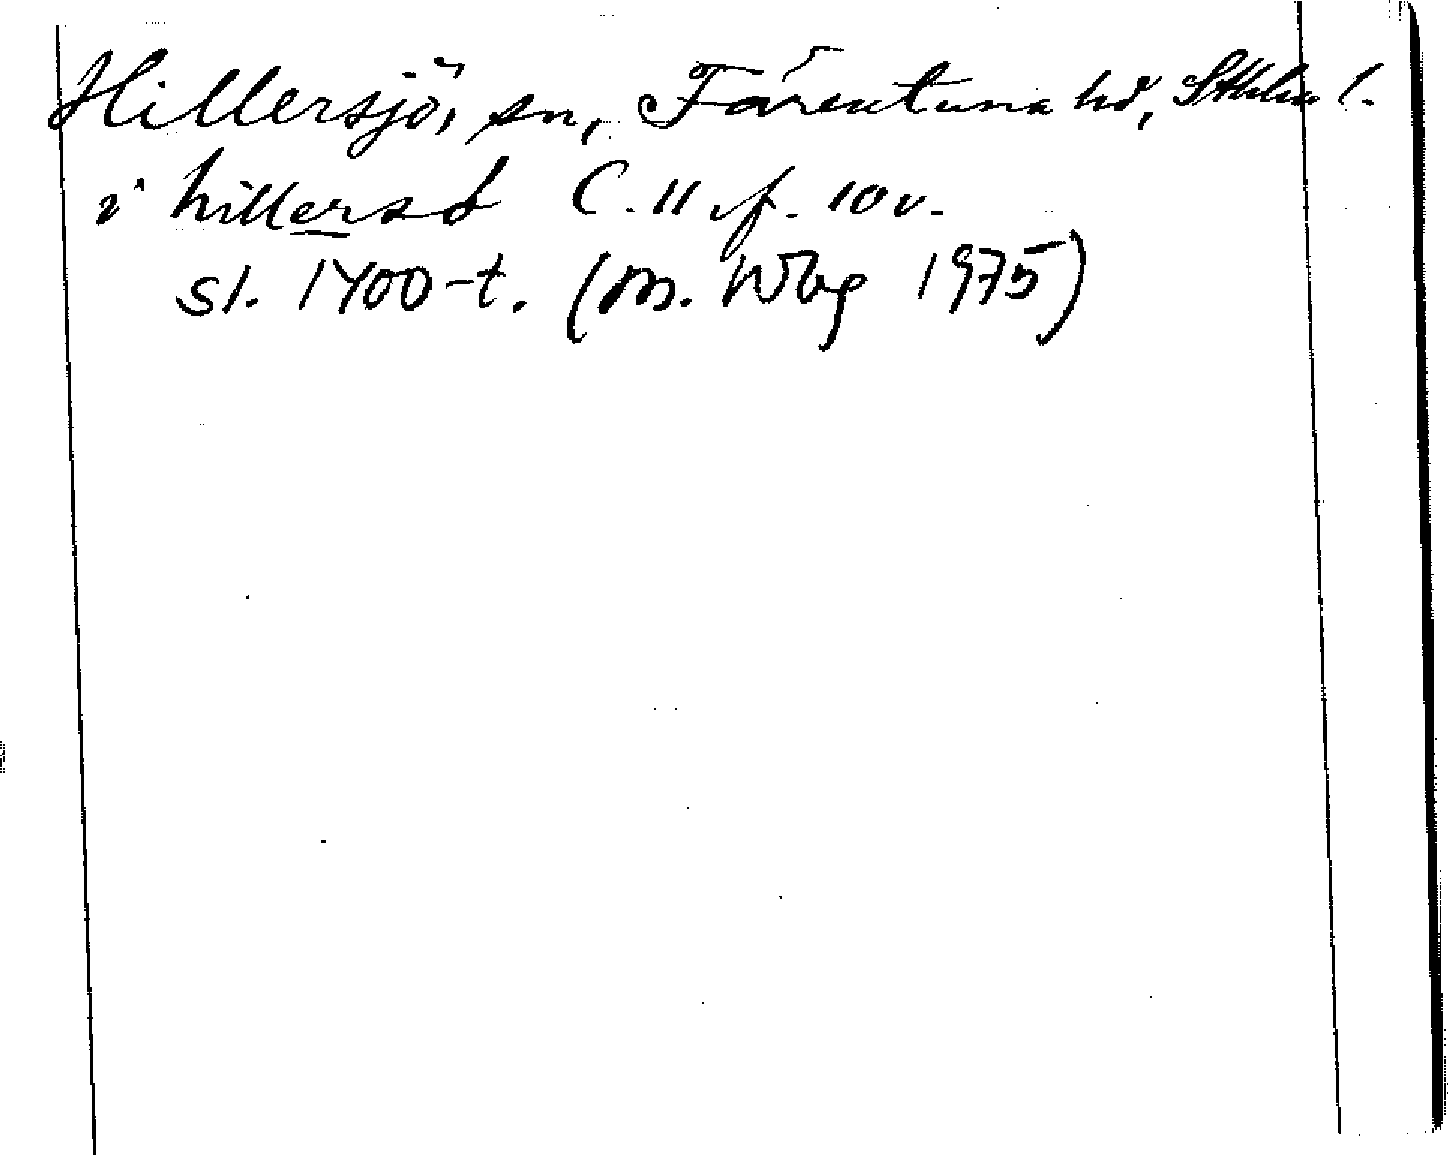 Hillersjö, sn, Färentuna hd, Sthlm l.
i hillersø C. 11 f. 10 v.
sl. 1400-t. (M. Wbg 1975)